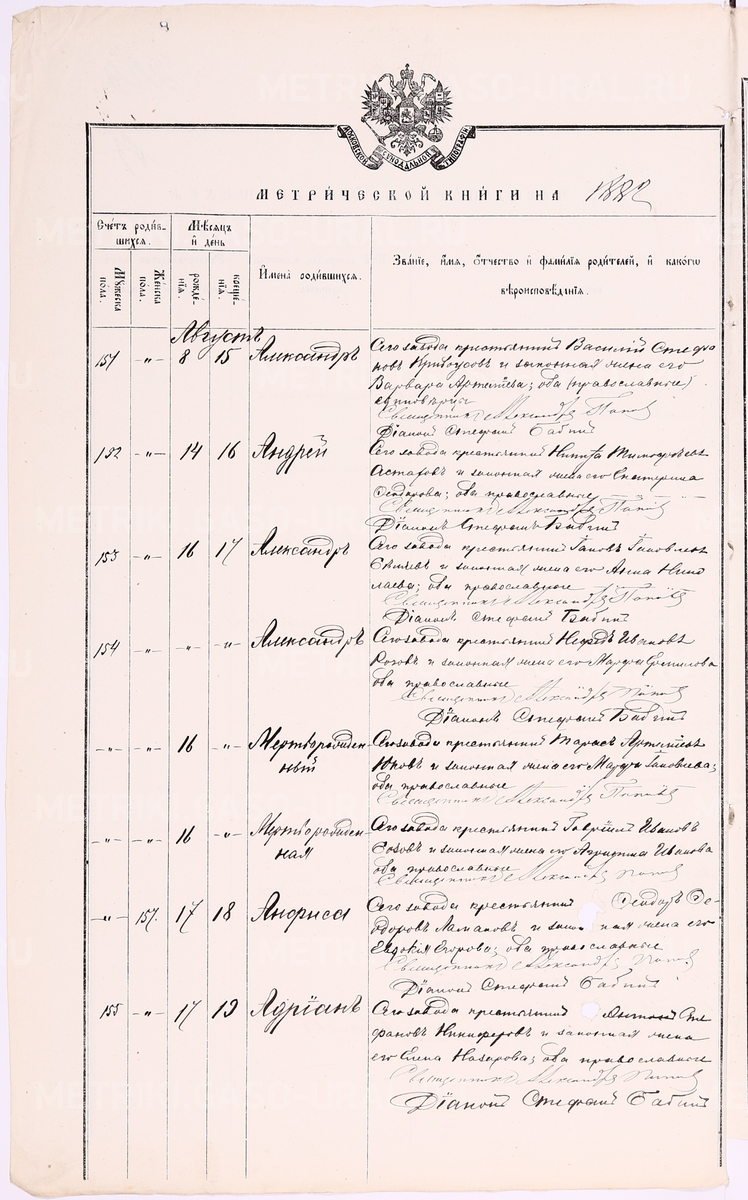 МОСКОВСКОЙ СѴНОДАЛЬНОЙ ТИПОГРАФІИ
МЕТРИЧЕСКОЙ КНИГИ НА 1882
Счетъ родив-
шихся.
Мѣсяцъ
и день
Мужеска
пола.
Женска
пола.
рожде-
нія.
креще-
нія.
Имена родившихся.
Званіе, имя, отчество и фамилія родителей, и какого
вѣроисповѣданія.
Августъ
151 -„- 8 15 Александръ
Сего завода крестьянинъ Василій Стефа
новъ и законная жена его
Варвара Артемьева; оба (православные)
единовѣрцы
Священникъ Александръ Поповъ
Діаконъ Стефанъ Бабинъ
152 -„- 14 16 Андрей
Сего завода крестьянинъ Никита Тимофѣевъ
Астафовъ и законная жена его Екатерина
Ѳеодорова; оба православные
Священникъ Александръ Поповъ
Діаконъ Стефанъ Бабинъ
153 -„- 16 17 Александръ
Сего завода крестьянинъ Іаковъ Іаковлевъ
и законная жена его Анна Нико
лаева; оба православные
Священникъ Александръ Поповъ
Діаконъ Стефанъ Бабинъ
154 -„- „- -„- Александръ
Сего завода крестьянинъ Ивановъ
и законная жена его Марфа
оба православные
Священникъ Александръ Поповъ
Діаконъ Стефанъ Бабинъ
-„- -„- 16 -„- Мертворожден-
ный
Сего завода крестьянинъ Тарасъ Артемьевъ
и законная жена его Марфа Іаковлева;
оба православные
Священникъ Александръ Поповъ
-„- -„- 16 -„- Мертворожден-
ная
Сего завода крестьянинъ Гавріилъ Ивановъ
и законная жена его Агрипина Иванова
оба православные
Священникъ Александръ Поповъ
-„- 157. 17 18 Анфиса
Сего завода крестьянинъ Ѳеодоръ Ѳе-
одоровъ и закон ная жена его
Евдокія Егорова; оба православные
Священникъ Александръ Поповъ
Діаконъ Стефанъ Бабинъ
155 -„- 17 19 Адріанъ
Сего завода крестьянинъ Антонъ Сте
фановъ Никифоровъ и законная жена
его Елена Назарова; оба православные
Священникъ Александръ Поповъ
Діаконъ Стефанъ Бабинъ